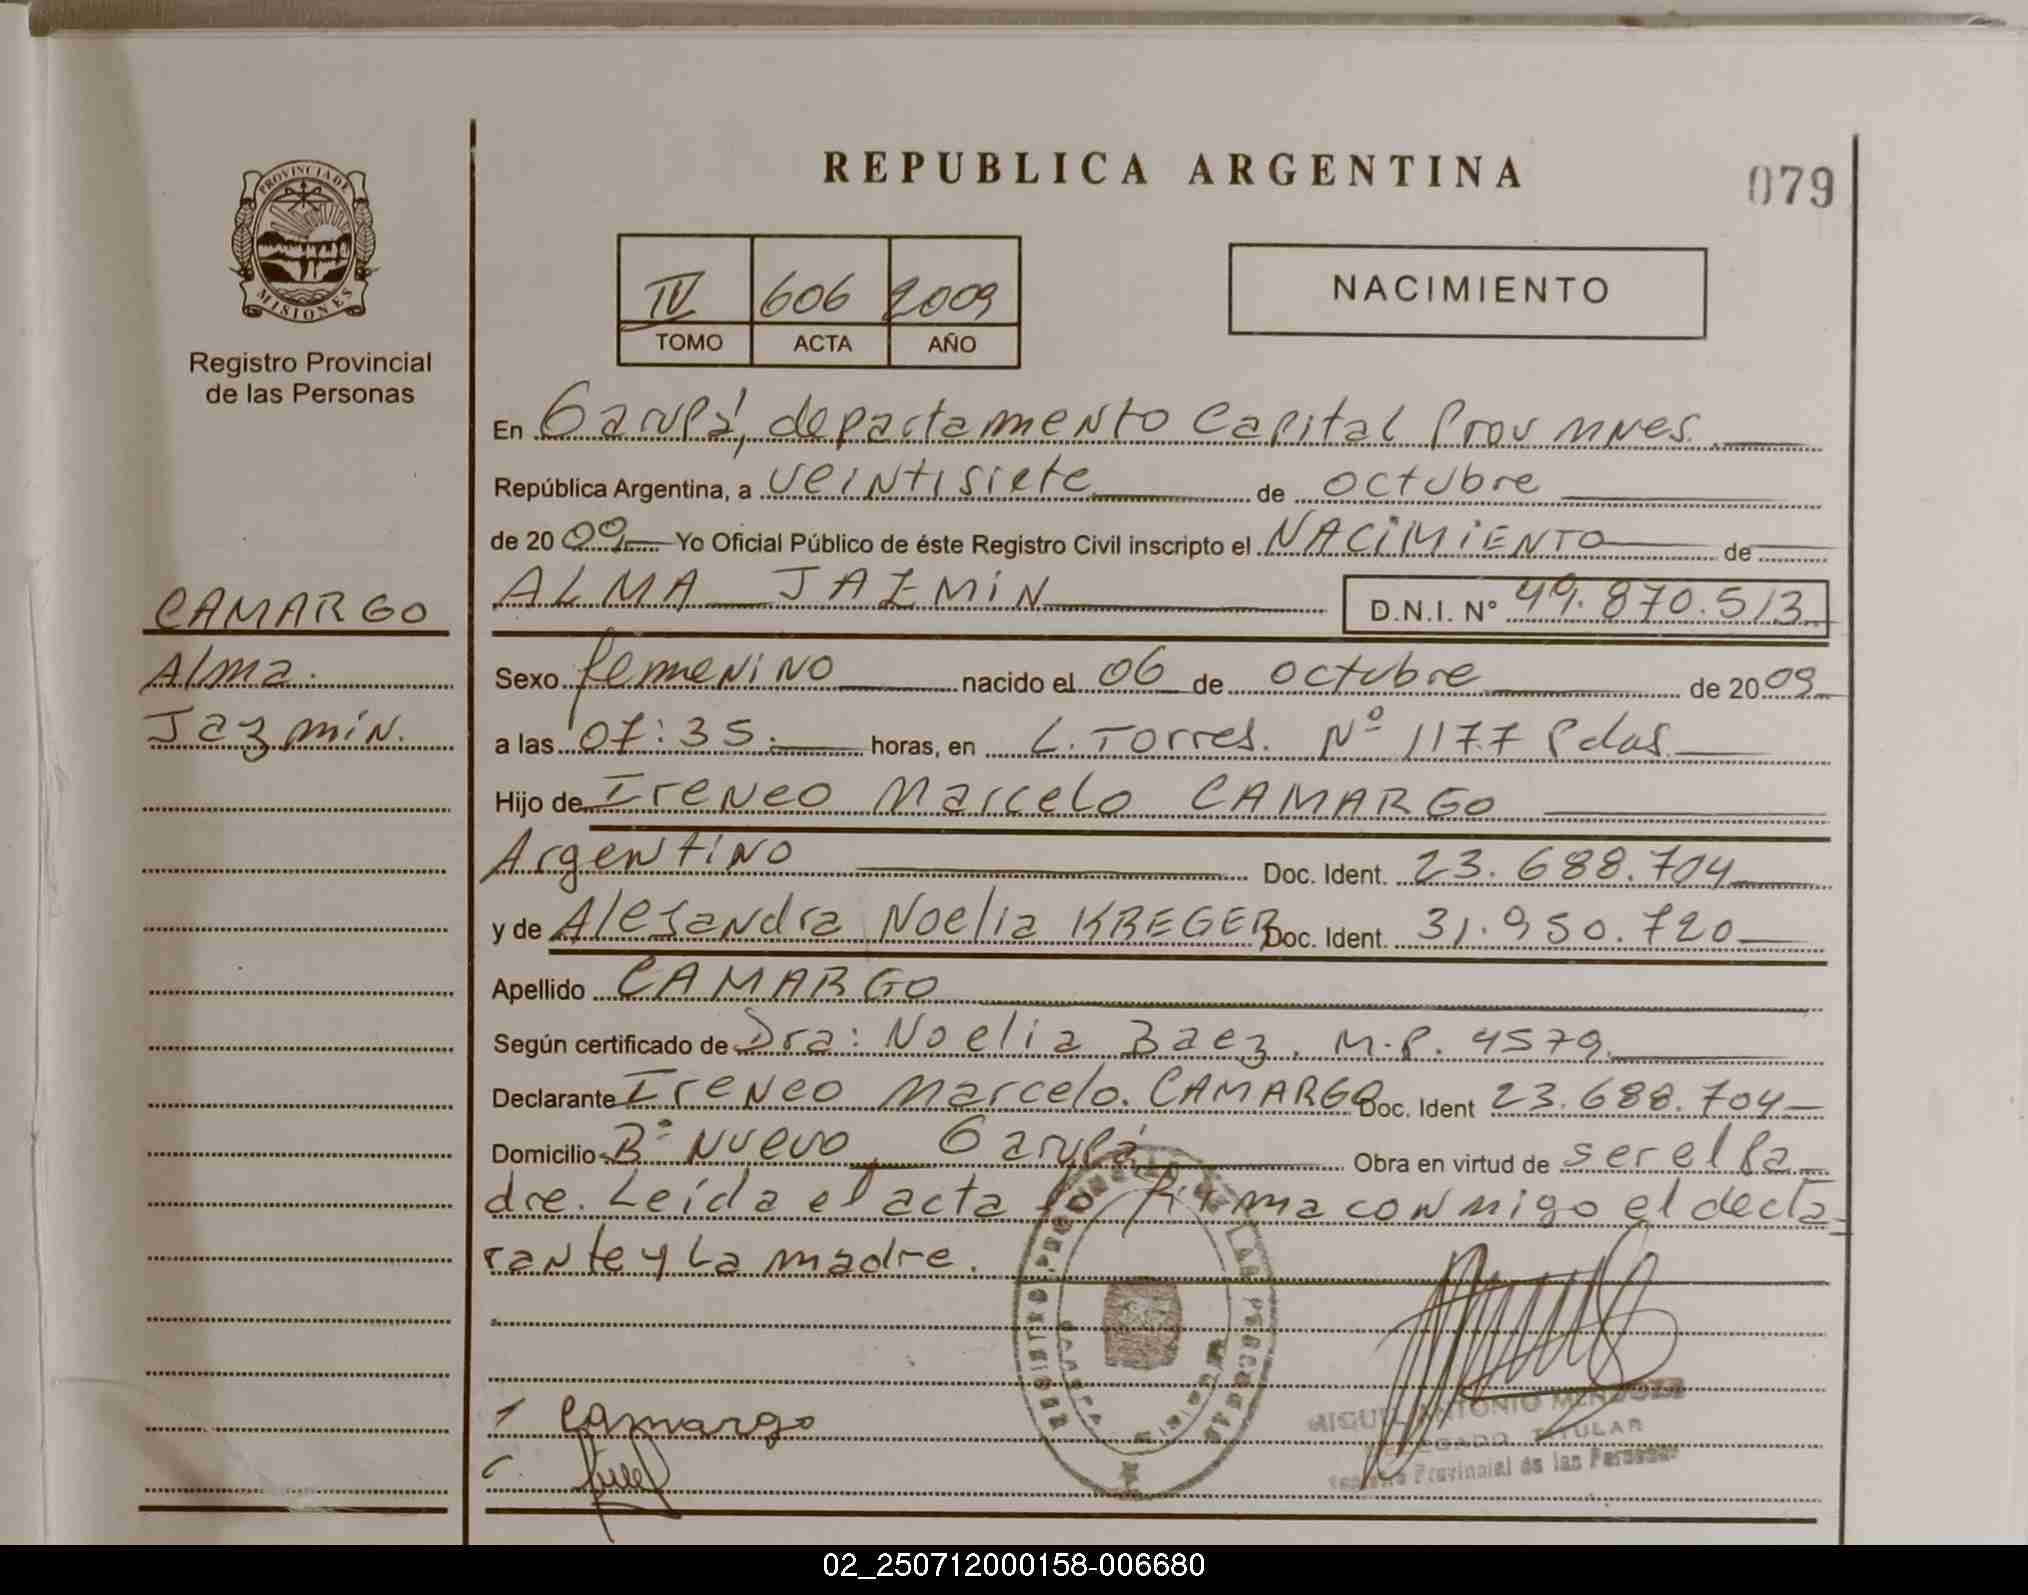 REPUBLICA ARGENTINA
079
PROVINCIA DE
MISIONES
Registro Provincial
de las Personas
IV 606 2009
TOMO ACTA AÑO
NACIMIENTO
En Garupá, departamento Capital Prov Mnes.
República Argentina, a veintisiete de octubre
de 2009 Yo Oficial Público de éste Registro Civil inscripto el NACIMIENTO de
ALMA JAZMIN D.N.I. N° 49.870.513
CAMARGO
Alma.
Jazmín.
Sexo femenino nacido el 06 de octubre de 2009
a las 07:35. horas, en L. Torres. Nº 1177 Pdas.
Hijo de Ireneo Marcelo CAMARGO
Argentino Doc. Ident. 23.688.704
y de Alejandra Noelia KREGER Doc. Ident. 31.950.720
Apellido CAMARGO
Según certificado de Dra: Noelia Baez. M.P. 4579.
Declarante Ireneo Marcelo. CAMARGO Doc. Ident 23.688.704
Domicilio Bº Nuevo, Garupá Obra en virtud de ser el Pa
dre. Leída el acta la firma conmigo el decla-
rante y la madre.
Camargo
MIGUEL ANTONIO
DELEGADO TITULAR
Registro Provincial de las Personas
02_250712000158-006680